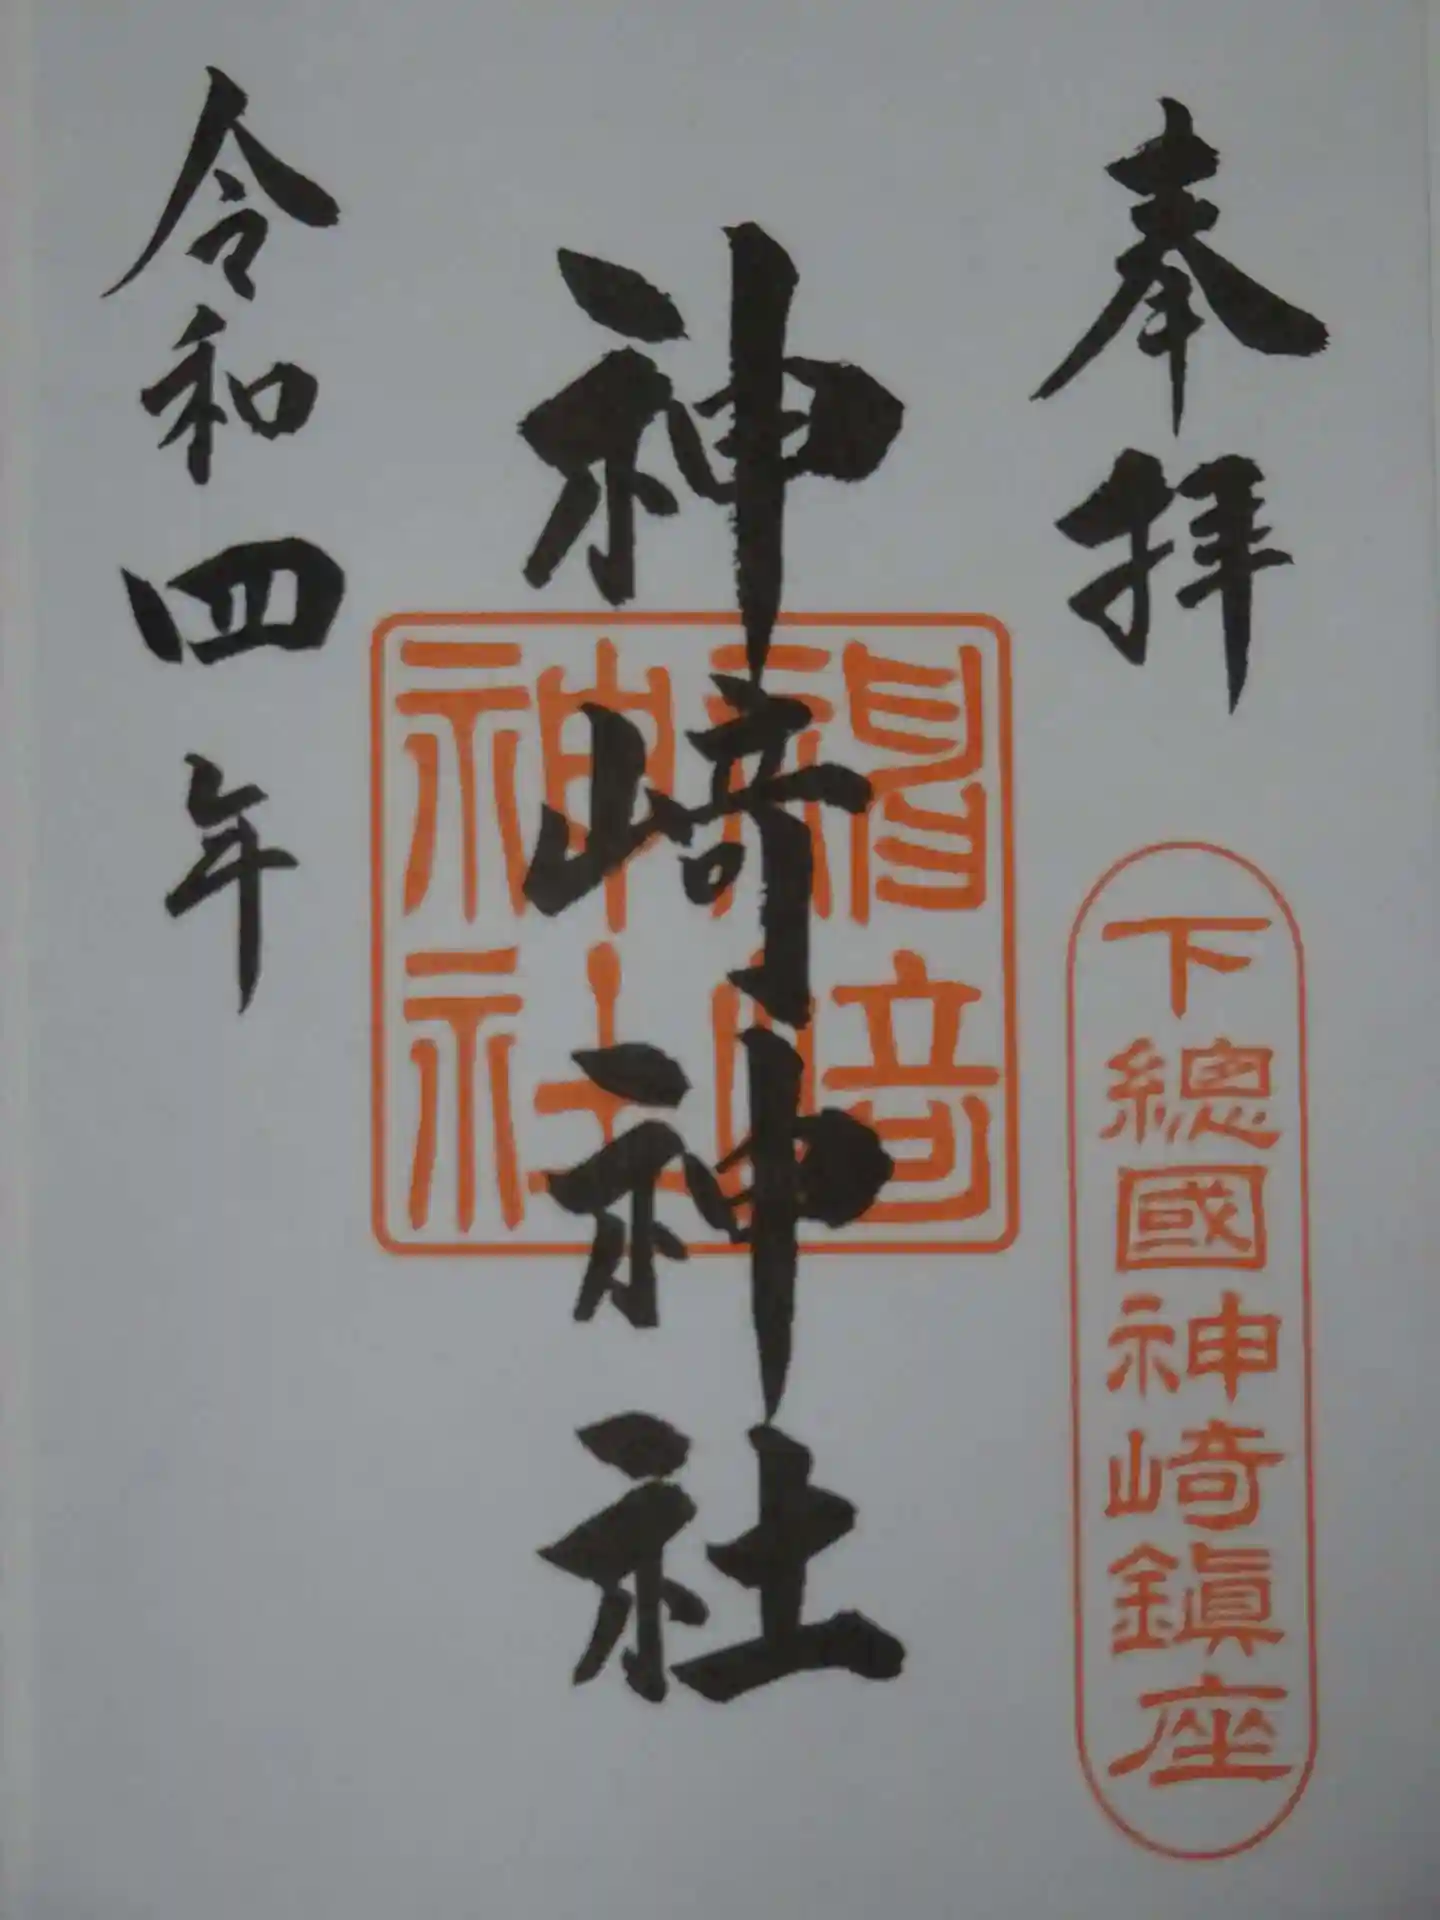 奉拝
下總國神崎鎭座
神崎神社
神崎
神社
令和四年